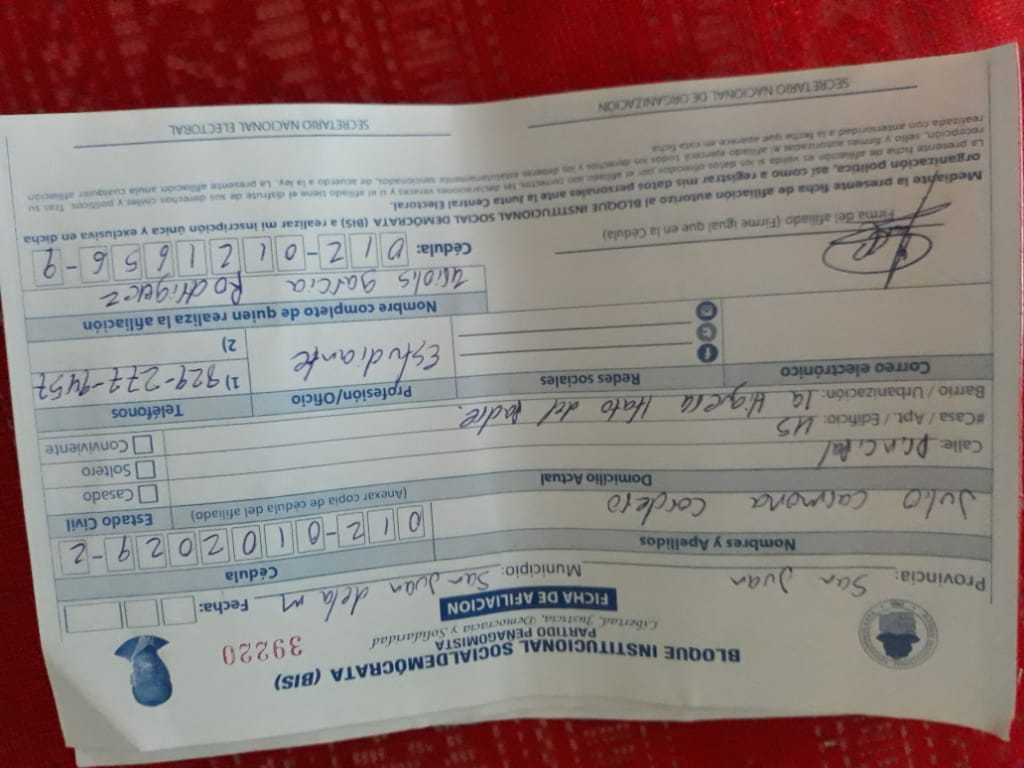 BLOQUE INSTITUCIONAL SOCIALDEMÓCRATA (BIS)
PARTIDO PEÑAGOMISTA
Libertad, Justicia, Democracia y Solidaridad
39220
FICHA DE AFILIACIÓN
Fecha:
Provincia: San Juan Municipio: San Juan dela m
Nombres y Apellidos Cédula
Julio Carmona Cordero 012-0102029-2
(Anexar copia de cédula del afiliado)
Domicilio Actual Estado Civil
Calle: Principal Casado
#Casa / Apt. / Edificio: 45 Soltero
Barrio / Urbanización: La Higuera Hato del Padre. Conviviente
Correo electrónico Redes sociales Profesión/Oficio Teléfonos
Estudiante 1) 829-277-9457
2)
Nombre completo de quien realiza la afiliación
García Rodriguez
Firma del afiliado (Firme igual que en la Cédula) Cédula: 012-0121656-9
Mediante la presente ficha de afiliación autorizo al BLOQUE INSTITUCIONAL SOCIALDEMÓCRATA (BIS) a realizar mi inscripción única y exclusiva en dicha
organización política, así como a registrar mis datos personales ante la Junta Central Electoral.
La presente ficha de afiliación es válida si los datos ofrecidos por el afiliado son correctos, las declaraciones veraces y si el afiliado tiene el disfrute de sus derechos civiles y políticos. Tras su
recepción, sello y firmas autorizadas el afiliado ejercerá todos los derechos y los deberes estatutariamente sancionados, de acuerdo a la ley. La presente afiliación anula cualquier afiliación
realizada con anterioridad a la fecha que aparece en esta ficha.
SECRETARIO NACIONAL DE ORGANIZACIÓN SECRETARIO NACIONAL ELECTORAL